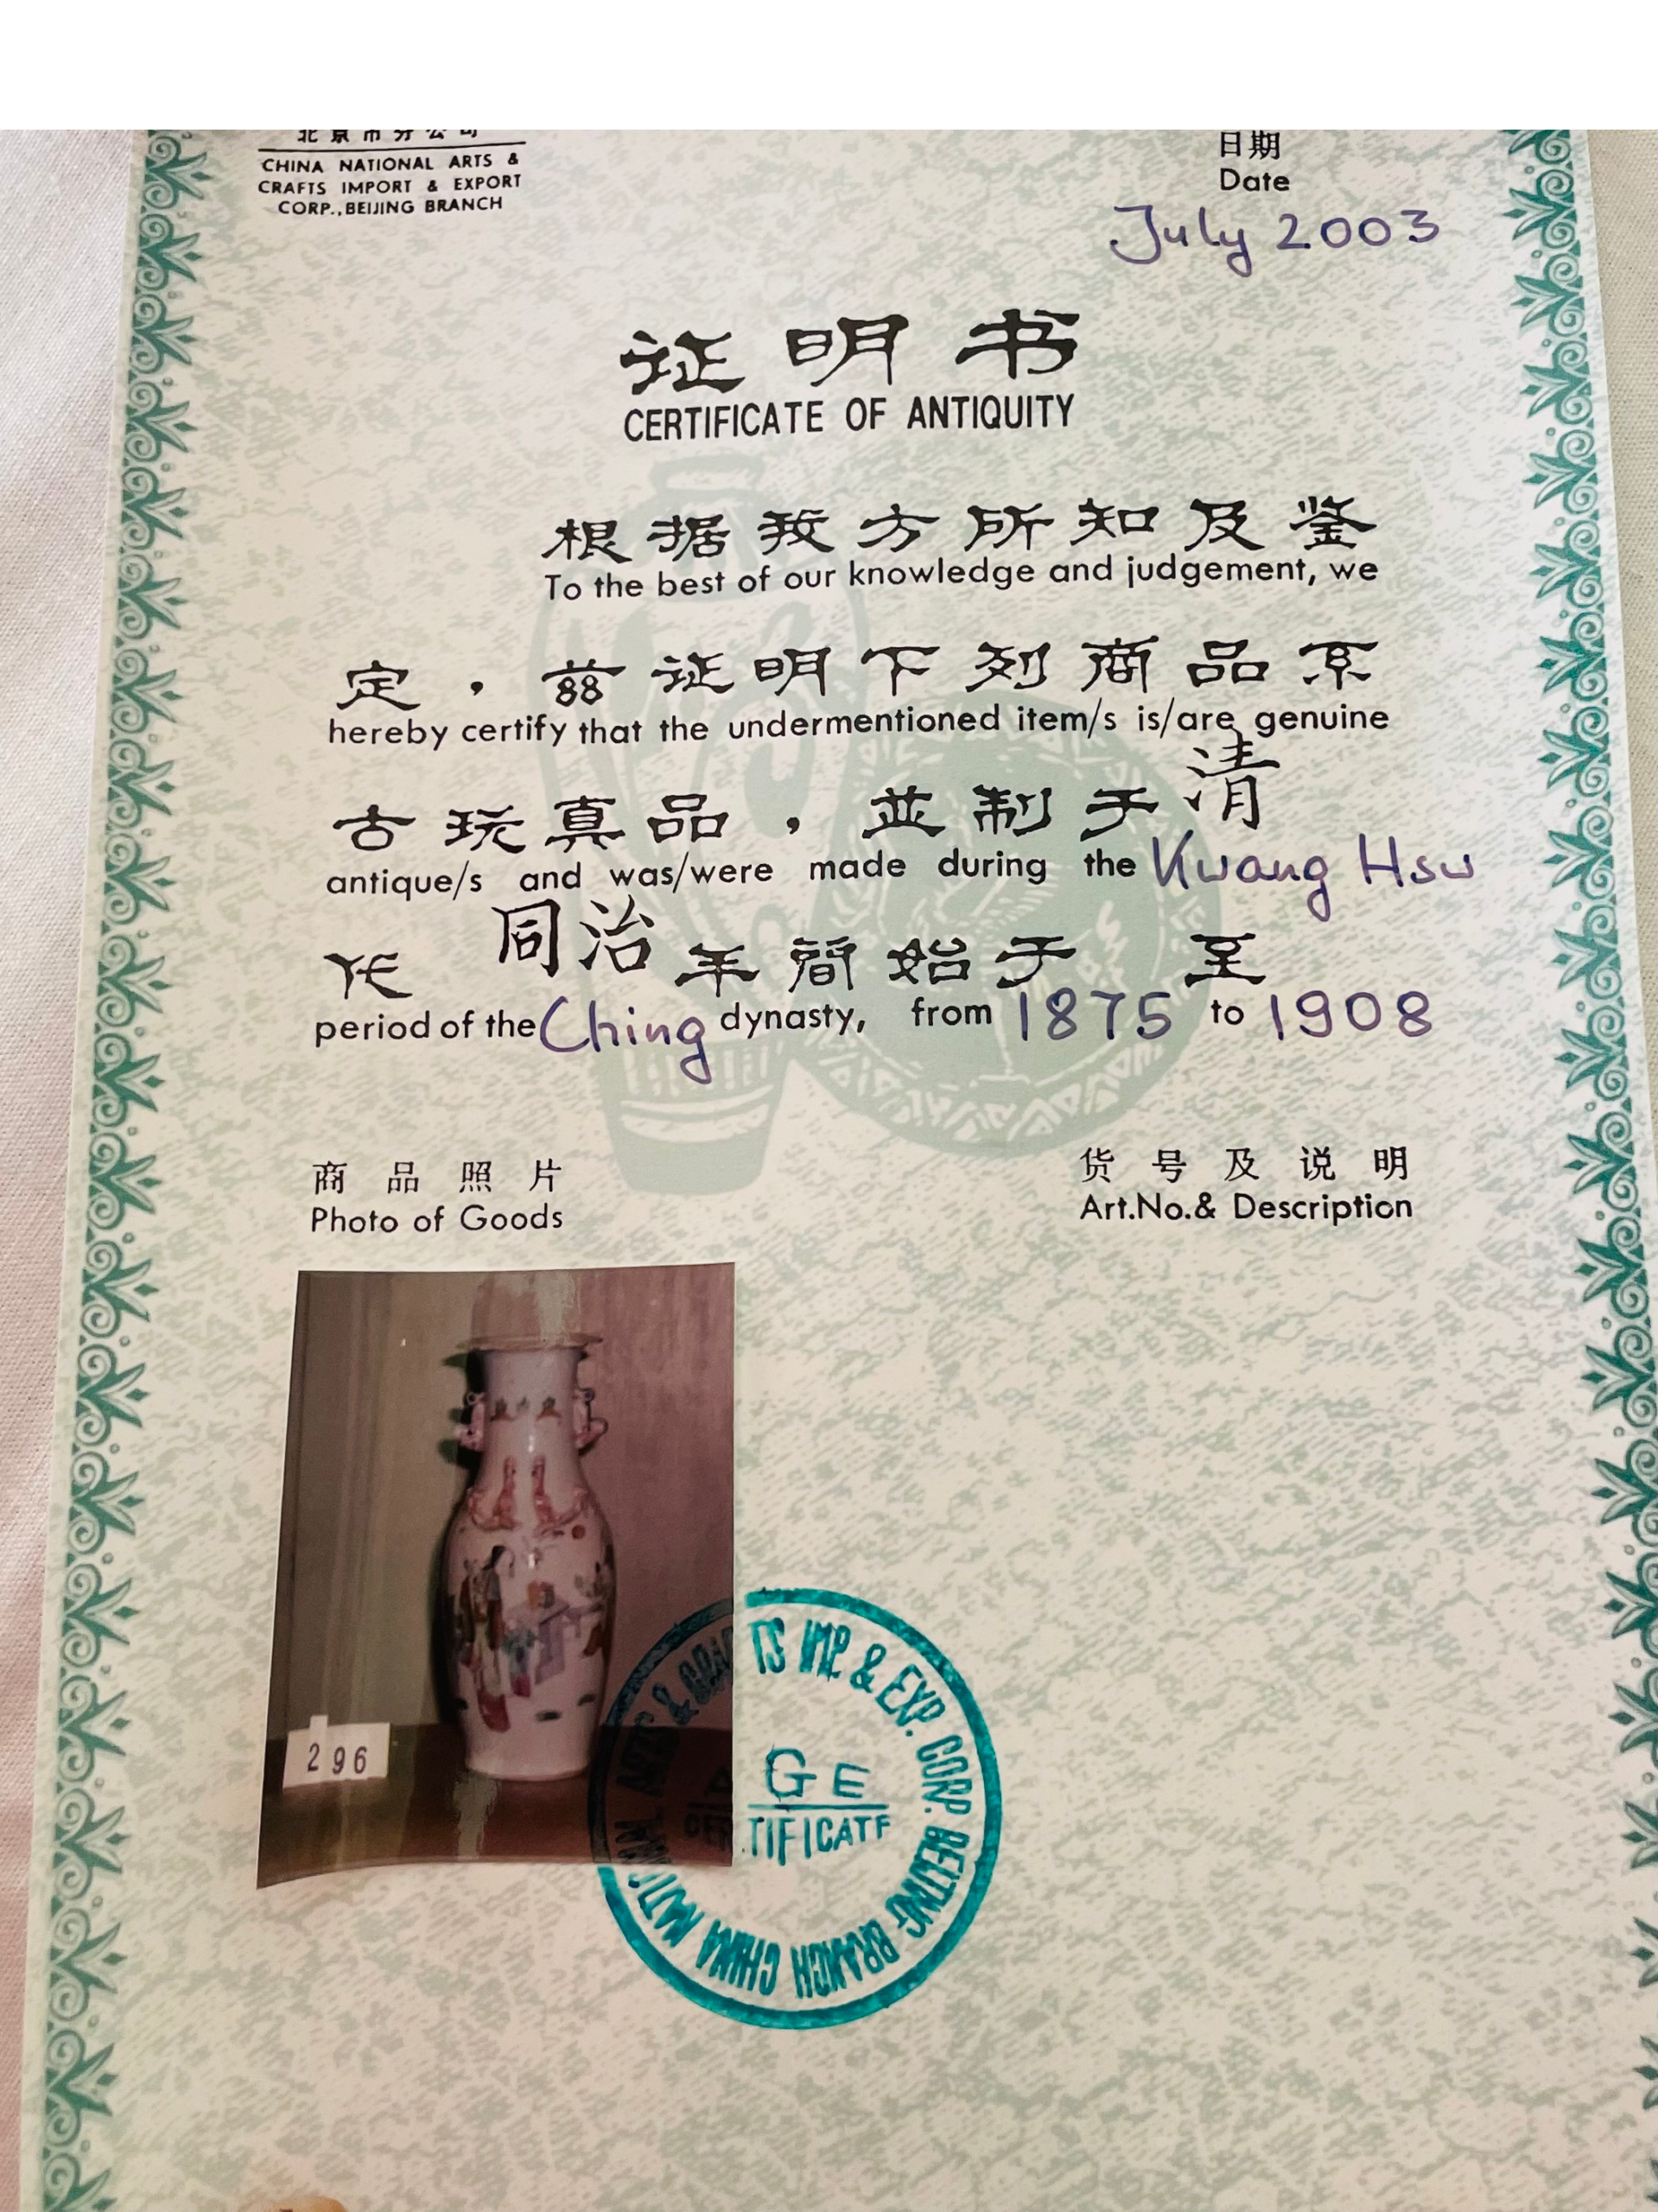 北京市分公司
CHINA NATIONAL ARTS &
CRAFTS IMPORT & EXPORT
CORP., BEIJING BRANCH
日期
Date
July 2003
证明书
CERTIFICATE OF ANTIQUITY
根据我方所知及鉴
To the best of our knowledge and judgement, we
定，兹证明下列商品系
hereby certify that the undermentioned item/s is/are genuine
古玩真品，並制于清
antique/s and was/were made during the Kwang Hsu
代 同治年间始于 至
period of the Ching dynasty, from 1875 to 1908
商品照片
Photo of Goods
货号及说明
Art.No.& Description
296
CHINA NATIONAL ARTS & CRAFTS IMP & EXP. CORP. BEIJING BRANCH
GE
CERTIFICATE